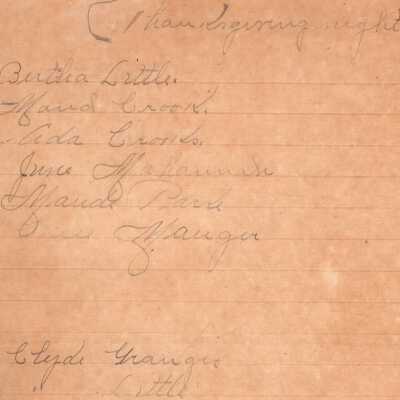 (Thanksgiving night
Bertha Little.
Maud Crook.
Ada Crooks.
June
Maude Park
Mauger
Clyde Granger
" Little